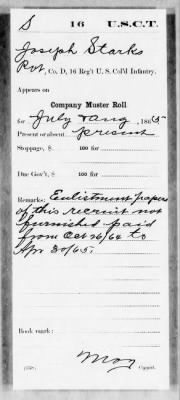 S 16 U.S.C.T.
Joseph Starks
Pvt, Co. D, 16 Reg't U. S. Col'd Infantry.
Appears on
Company Muster Roll
for July & Aug, 1865
Present or absent Present
Stoppage, $ 100 for
Due Gov't, $ 100 for
Remarks: Enlistment papers
of this recruit not
furnished paid
from Oct 26/64 to
Apr 30/65.
Book mark:
May
(358) Copyist.